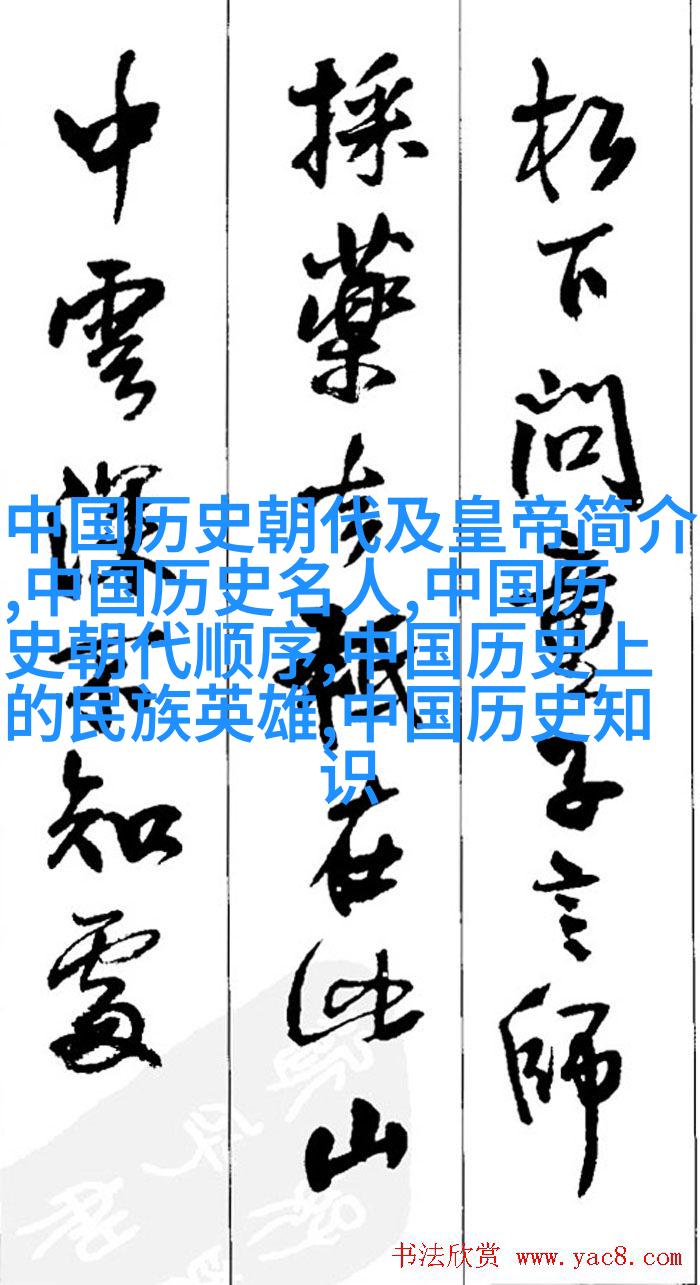 松下问童子言師
採藥去秖在此山
中雲深不知處
中国历史朝代及皇帝简介
,中国历史名人,中国历
史朝代顺序,中国历史上
的民族英雄,中国历史知
识
书法欣赏 www.yac8.com